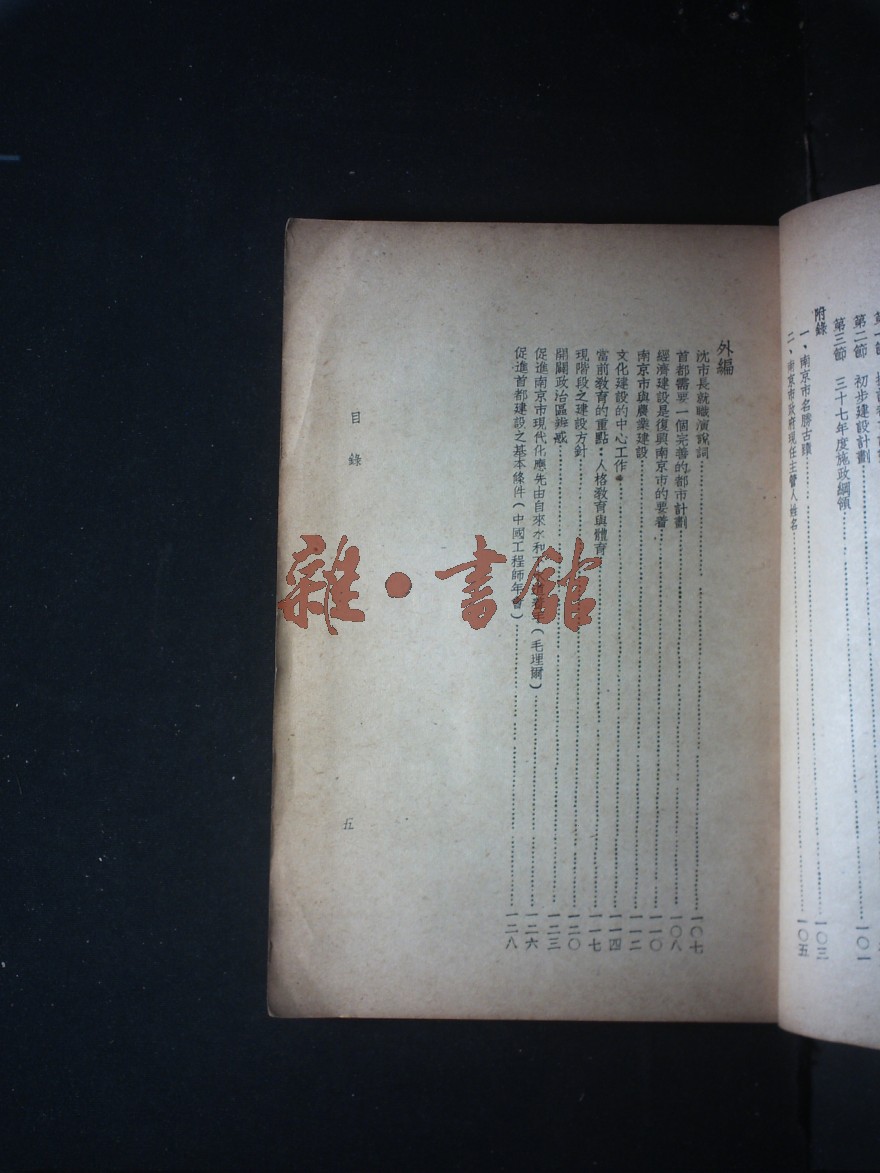 第二節　初步建設計劃……一〇一
第三節　三十七年度施政綱領
附錄……一〇三
一、南京市名勝古蹟
二、南京市政府現任主管人姓名……一〇五
外編
沈市長就職演說詞……一〇七
首都需要一個完善的都市計劃……一〇八
經濟建設是復興南京市的要着……一一〇
南京市與農業建設……一一二
文化建設的中心工作……一一四
當前教育的重點：人格教育與體育……一一七
現階段之建設方針……一二〇
開闢政治區辨惑……一二三
促進南京市現代化應先由自來水和（毛理爾）……一二六
促進首都建設之基本條件（中國工程師年會）……一二八
目錄
五
雜・書館